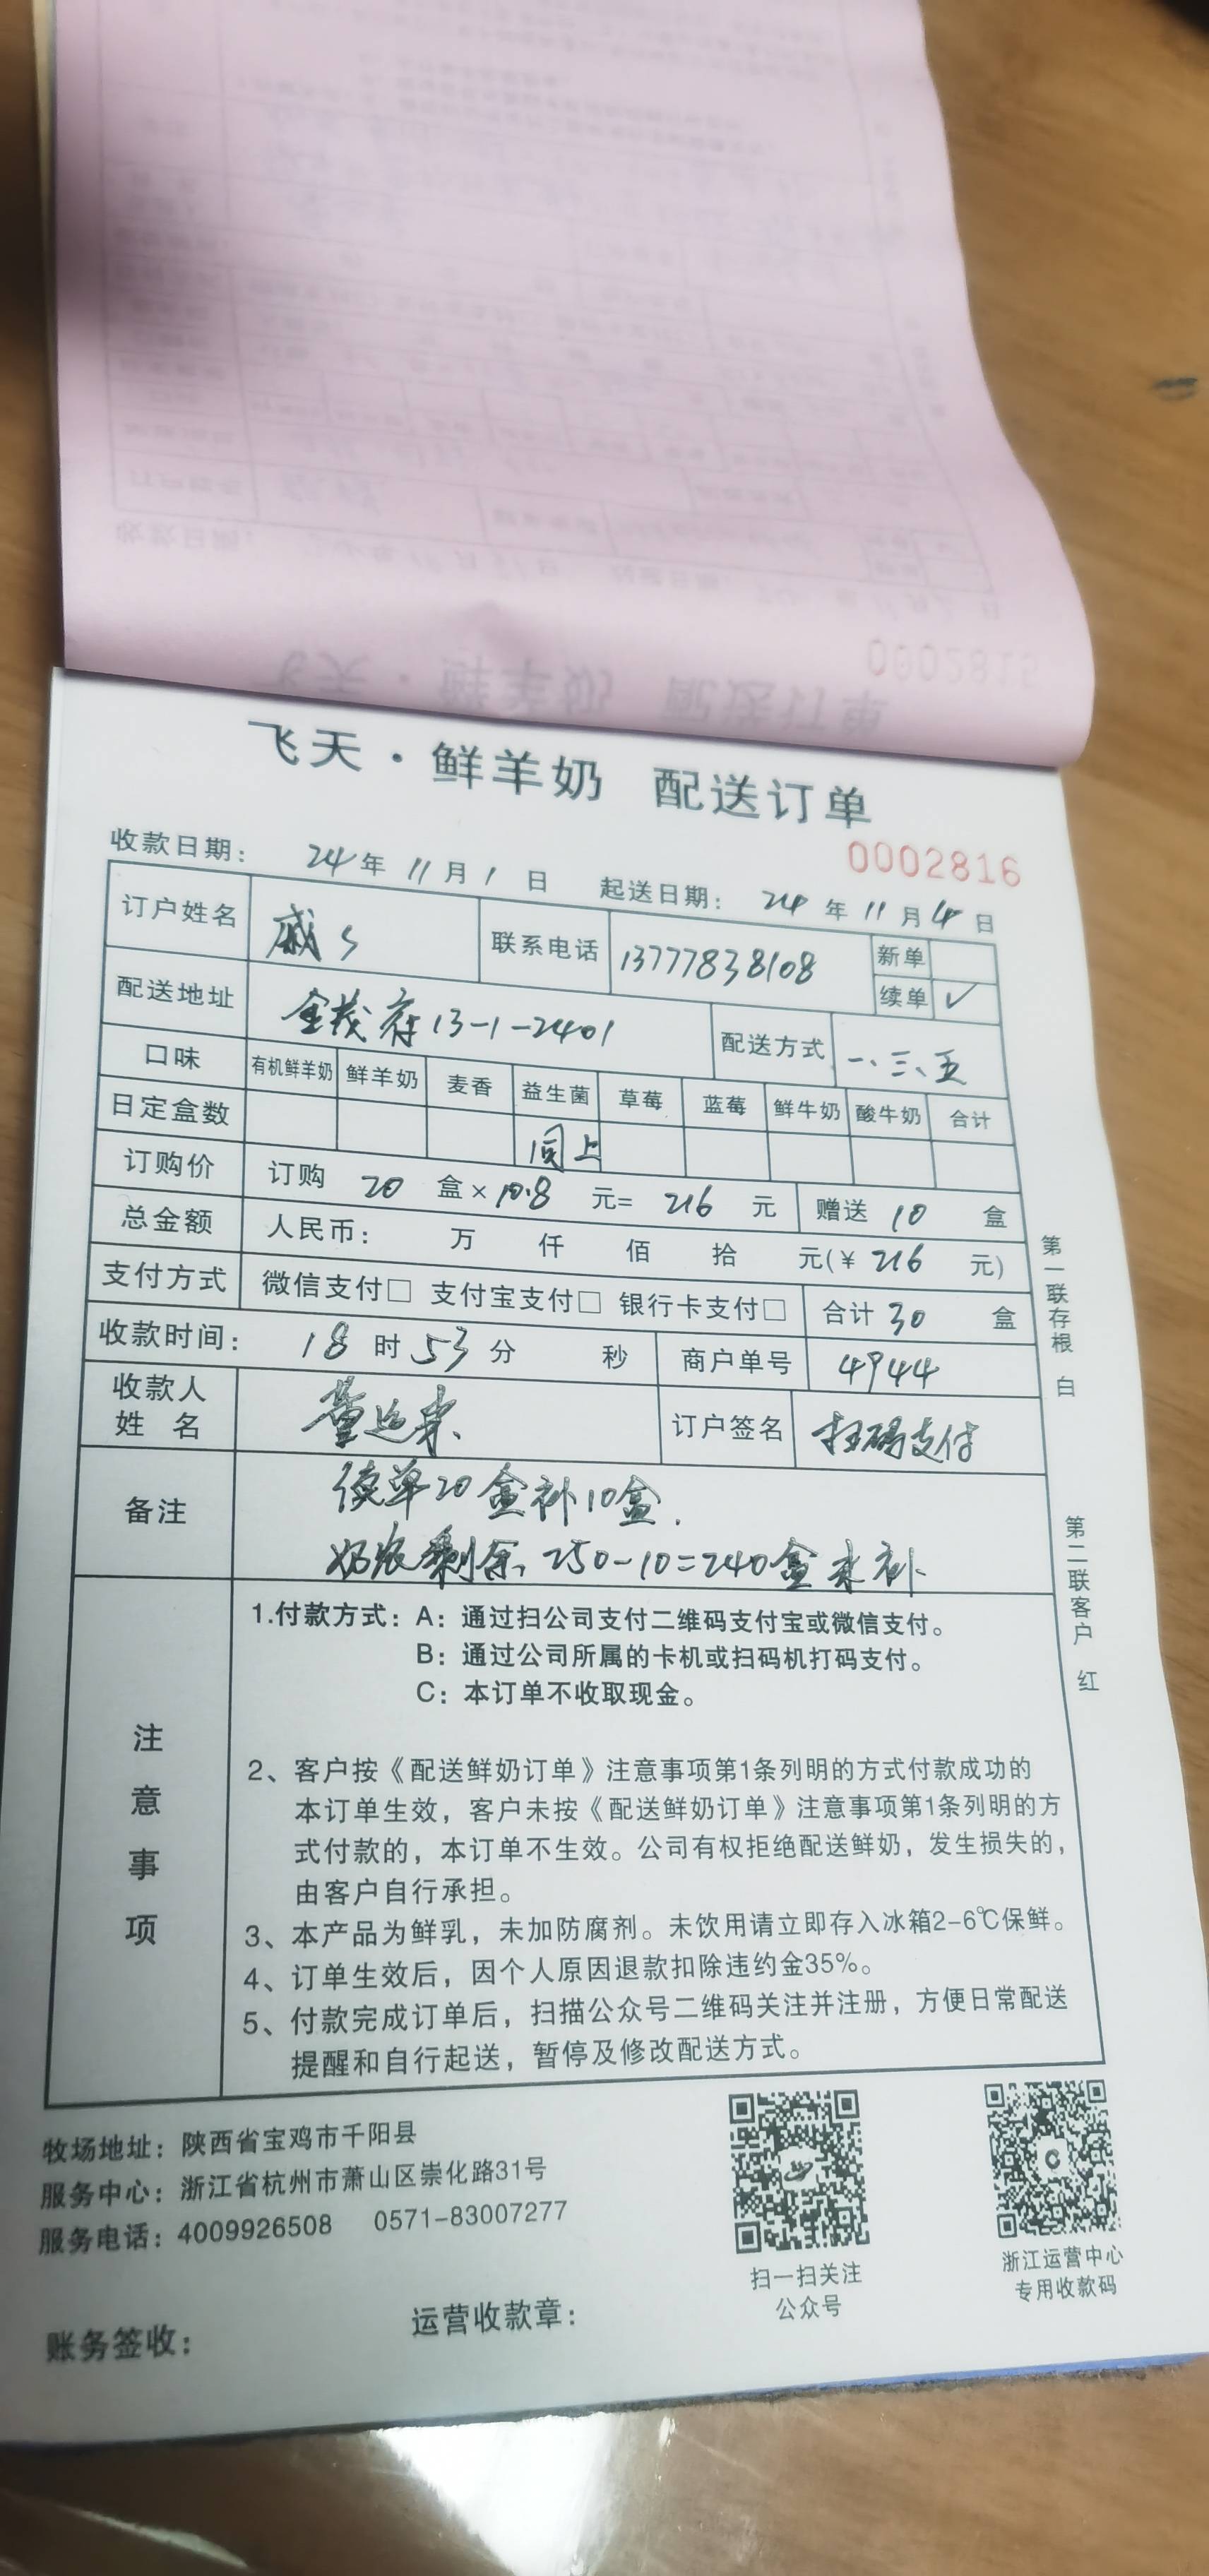 飞天·鲜羊奶 配送订单
0002816
收款日期: 24年11月1日 起送日期: 24年11月4日
订户姓名 戚 联系电话 13777838108 新单
续单 ✓
配送地址 金茂府13-1-2401 配送方式 一、三、五
口味 有机鲜羊奶 鲜羊奶 麦香 益生菌 草莓 蓝莓 鲜牛奶 酸牛奶 合计
日定盒数 同上
订购价 订购 20 盒×10.8 元= 216 元 赠送 10 盒
总金额 人民币: 万 仟 佰 拾 元(¥ 216 元)
支付方式 微信支付□ 支付宝支付□ 银行卡支付□ 合计 30 盒
收款时间: 18时53分 秒 商户单号 4944
收款人姓名 订户签名 扫码支付
备注 续单20盒补10盒.
奶农剩余, 250-10=240盒未补
注意事项
1.付款方式: A: 通过扫公司支付二维码支付宝或微信支付。
B: 通过公司所属的卡机或扫码机打码支付。
C: 本订单不收取现金。
2、客户按《配送鲜奶订单》注意事项第1条列明的方式付款成功的
本订单生效，客户未按《配送鲜奶订单》注意事项第1条列明的方
式付款的，本订单不生效。公司有权拒绝配送鲜奶，发生损失的，
由客户自行承担。
3、本产品为鲜乳，未加防腐剂。未饮用请立即存入冰箱2-6℃保鲜。
4、订单生效后，因个人原因退款扣除违约金35%。
5、付款完成订单后，扫描公众号二维码关注并注册，方便日常配送
提醒和自行起送，暂停及修改配送方式。
第一联存根 白
第二联客户 红
牧场地址: 陕西省宝鸡市千阳县
服务中心: 浙江省杭州市萧山区崇化路31号
服务电话: 4009926508 0571-83007277
扫一扫关注
公众号
浙江运营中心
专用收款码
账务签收:
运营收款章: